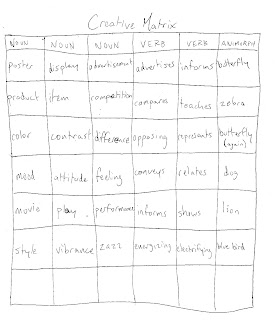 Creative Matrix
NOUN NOUN NOUN VERB VERB ANIMORPH
poster display advertisement advertises informs butterfly
product item competition compares teaches zebra
color contrast difference opposing represents butterfly (again)
mood attitude feeling conveys relates dog
movie play performance informs shows lion
style vibrance zazz energizing electrifying blue bird